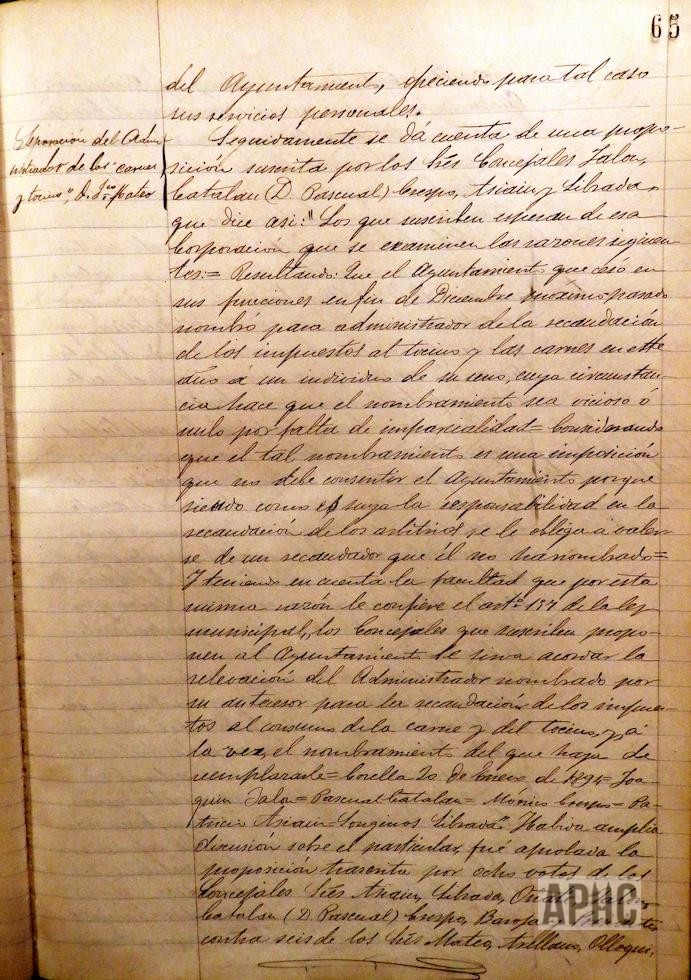 65
del Ayuntamiento, ofreciendo para tal caso
sus servicios personales.
Separación del Admi-
nistrador de las "carnes
y tocino", D. Jco Mateo
Seguidamente se dá cuenta de una propo-
sición suscrita por los Srés Concejales Jalon,
Catalan (D. Pascual) Crespo, Asiain y Librada,
que dice asi: "Los que suscriben esperan de esa
Corporacion que se examinen las razones siguien-
tes:= Resultando: Que el Ayuntamiento que cesó en
sus funciones en fin de Diciembre proximo pasado
nombró para administrador de la recaudación
de los impuestos al tocino y las carnes en este
año á un individuo de su seno, cuya circunstan-
cia hace que el nombramiento sea vicioso ó
nulo por falta de imparcialidad= Considerando
que el tal nombramiento es una imposición
que no debe consentir el Ayuntamiento porque
siendo como es suya la responsabilidad en la
recaudación de los arbitrios se le obliga á valer-
se de un recaudador que él no ha nombrado=
Y teniendo en cuenta la facultad que por esta
misma razón le confiere el artº 157 de la ley
municipal, los Concejales que suscriben propo-
nen al Ayuntamiento se sirva acordar la
relevación del Administrador nombrado por
su antecesor para la recaudación de los impues-
tos al consumo de la carne y del tocino, y á
la vez, el nombramiento del que haya de
reemplazarle= Corella 20 de Enero de 1894= Joa-
quin Jalon= Pascual Catalan= Mónico Crespo= Pa-
tricio Asiain= Longinos Librada". Habida amplia
discusión sobre el particular, fué aprobada la
proposición trascrita por ocho votos de los
Concejales Srés Asiain, Librada, Oñate,
Catalan (D. Pascual) Crespo, Baroja
contra seis de los Srés Mateo, Arellano, Olloqui,
APHC